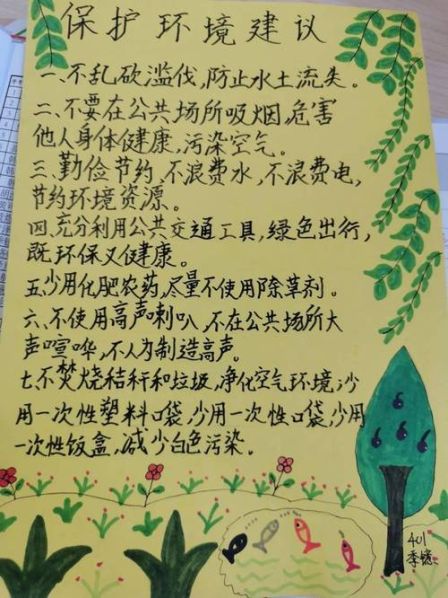 保护环境建议
一、不乱砍滥伐,防止水土流失。
二、不要在公共场所吸烟,危害
他人身体健康,污染空气。
三、勤俭节约,不浪费水,不浪费电,
节约环境资源。
四、充分利用公共交通工具,绿色出行,
既环保又健康。
五、少用化肥农药,尽量不使用除草剂。
六、不使用高声喇叭,不在公共场所大
声喧哗,不人为制造高声。
七、不焚烧秸秆和垃圾,净化空气环境,少
用一次性塑料口袋,少用一次性口袋,少用
一次性饭盒,减少白色污染。
401
李